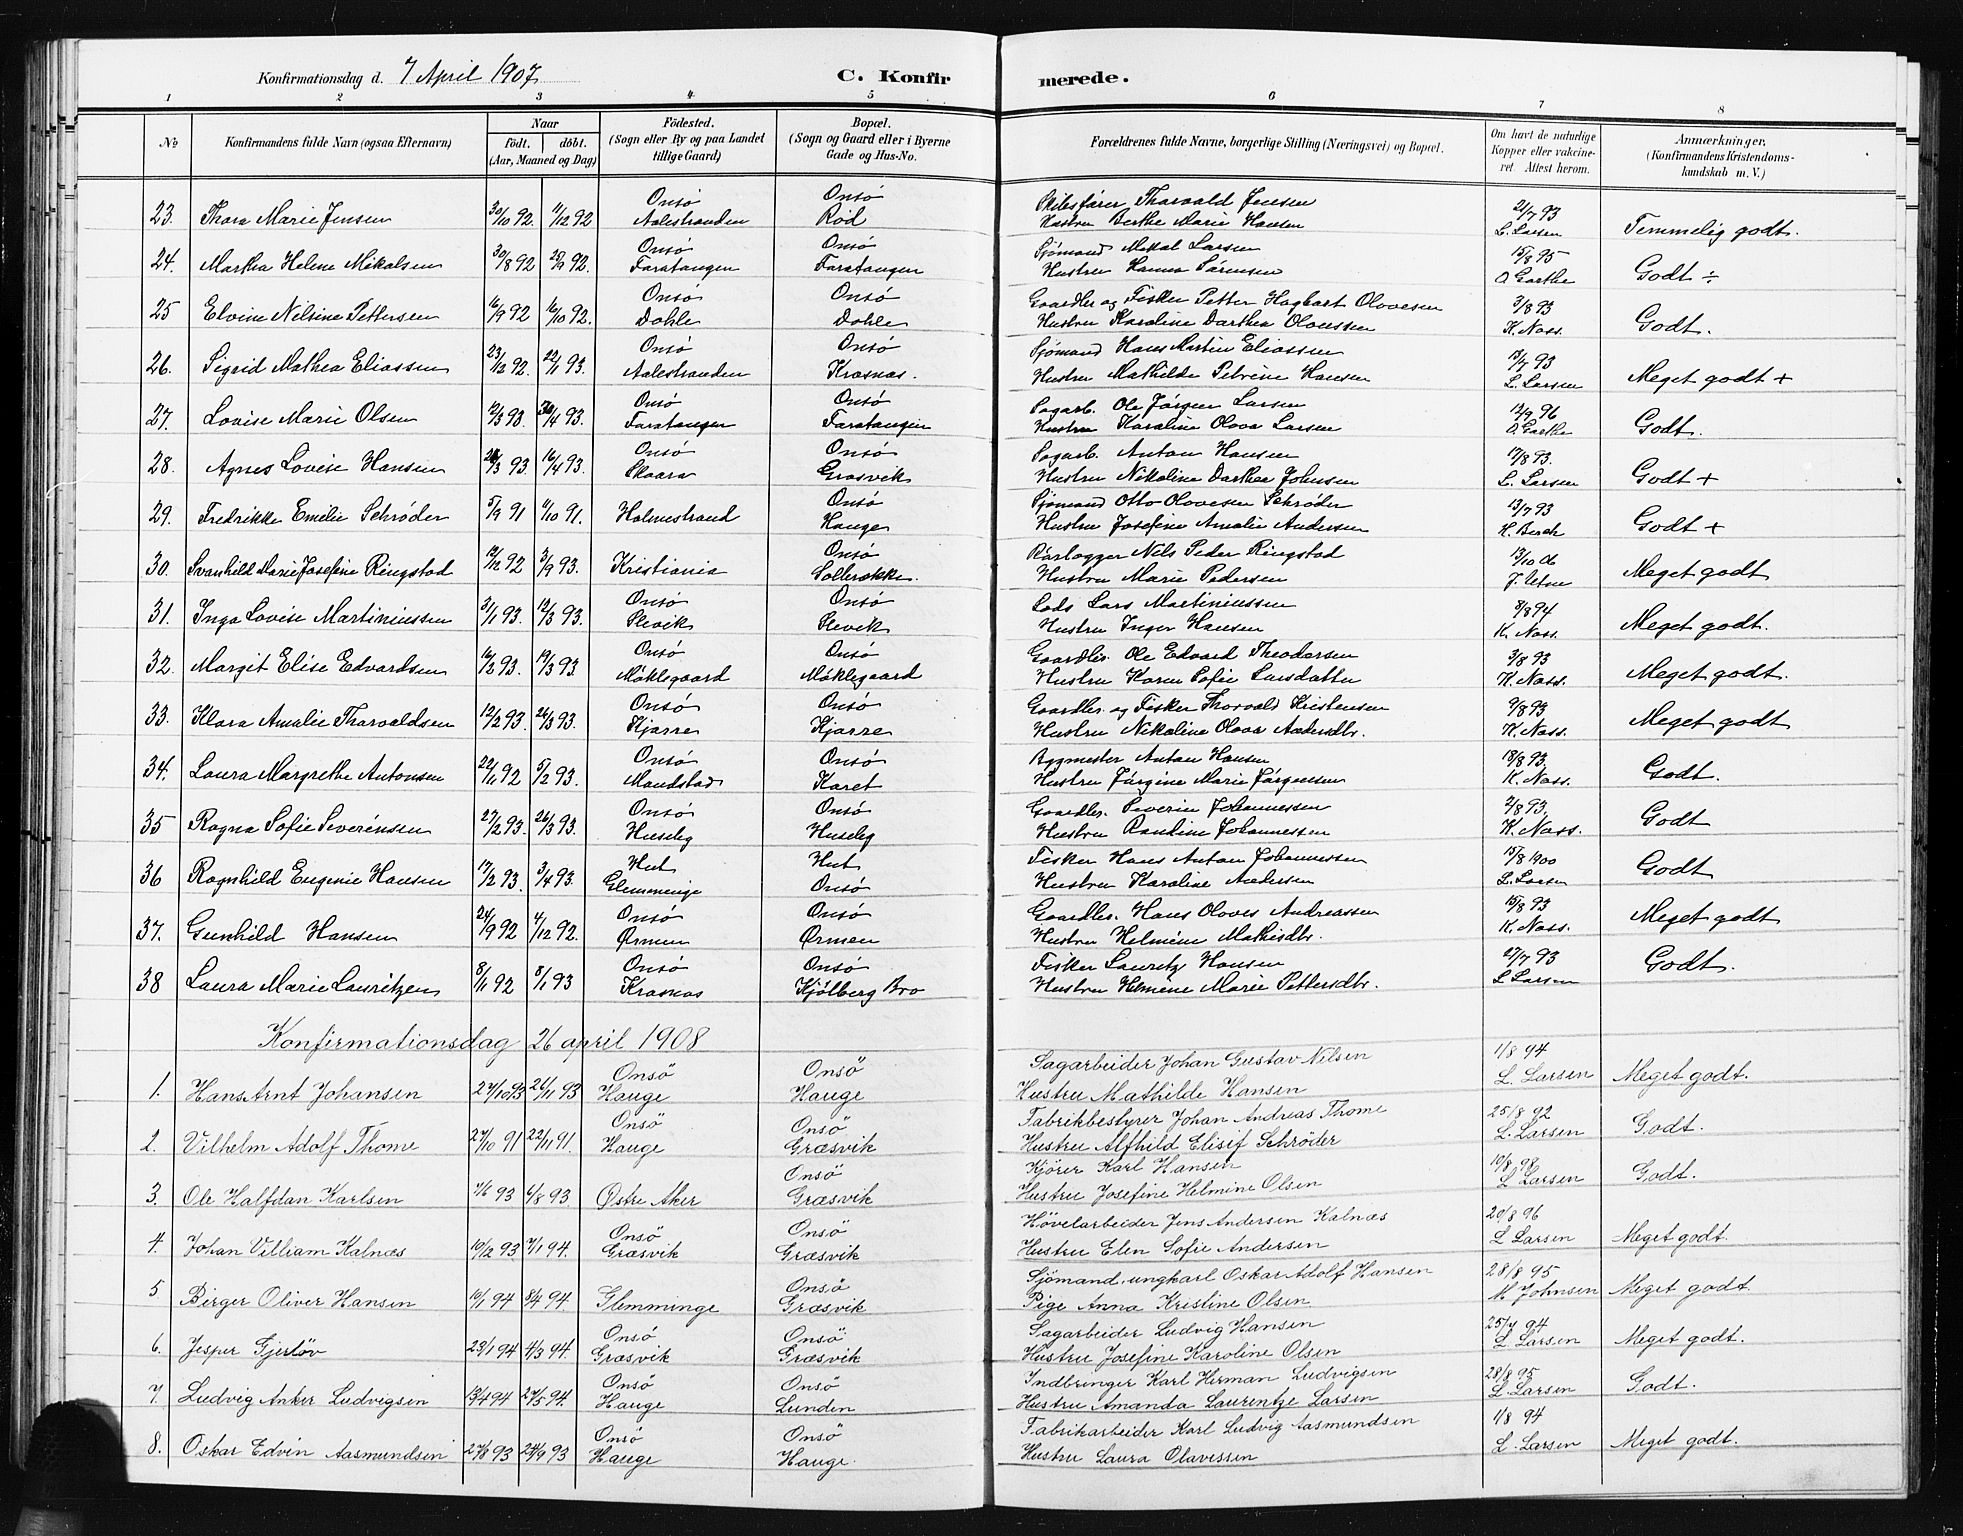 Konfirmationsdag d. 7 April 1907 C. Konfirmerede.
1 2 3 4 5 6 7 8
No Konfirmandens fulde Navn (ogsaa Efternavn) Naar Födested. Bopæl. Forældrenes fulde Navne, borgerlige Stilling (Næringsvei) og Bopæl. Om havt de naturlige Anmærkninger,
födt. döbt. (Sogn eller By og paa Landet (Sogn og Gaard eller i Byerne Kopper eller vakcine- (Konfirmandens Kristendoms-
(Aar, Maaned og Dag) tillige Gaard) Gade og Hus-No. ret. Attest herom. kundskab m. V.)
Onsö Onsö Skibsfører Thorvald Jensen 2/7 93
23. Thora Marie Jensen 30/10 92. 11/12 92 Aalestranden Rød Hustru Berthe Marie Hansen L. Larsen Temmelig godt.
Onsö Onsö Sjømand Mikal Larsen 15/8 95
24. Martha Helene Mikalsen 30/8 92 25/9 92. Faratangen Faratangen Hustru Hanna Sørensen O Garthe Godt ÷
Onsö Onsö Gaardbr. og Fisker Petter Hagbart Olavesen 3/8 93
25 Elvine Nilsine Pettersen 16/9 92 16/10 92. Dahle Dahle Hustru Karoline Darthea Olavessen K. Nass. Godt.
Onsö Onsö Sjømand Hans Martin Eliassen 13/7 93
26. Sigrid Mathea Eliassen 23/12 92. 22/1 93. Aalestranden Krosnæs. Hustru Mathilde Petrine Hansen L. Larsen Meget godt +
Onsö Onsö Sagarb. Ole Jørgen Larsen 12/9 96
27. Lovise Marie Olsen 12/3 93. 30/4 93. Faratangen Faratangen Hustru Karoline Olava Larsen O. Garthe Godt.
Onsö Onsö Sagarb. Anton Hansen 17/8 93.
28. Agnes Lovise Hansen 21/3 93. 16/4 93. Skaara Græsvik Hustru Nikoline Darthea Johnsen L. Larsen Godt +
Onsö Sjømand Otto Olavesen Schrøder 13/7 93
29. Fredrikke Emelie Schrøder 5/9 91 11/10 91. Holmestrand Hauge Hustru Josefine Amalie Andersen H. Berch Godt +
Onsö Rørlægger Nils Peder Ringstad 13/10 06
30. Svanhild Marie Josefine Ringstad 12/12 92 3/9 93. Kristiania Solbrække. Hustru Marie Pedersen Meget godt
Onsö Onsö Lods Lars Martiniussen 8/8 94
31. Inga Lovise Martiniussen 31/1 93. 12/3 93. Slevik Slevik Hustru Inger Hansen K. Nass. Meget godt.
Onsö Onsö Gaardbr. Ole Edvard Theodorsen 3/8 93
32. Margit Elise Edvardsen 16/2 93. 19/3 93. Møklegaard Møklegaard Hustru Karen Sofie Larsdatter K. Nass. Meget godt.
Onsö Onsö Gaardbr. og Fisker Thorvald Kristensen 9/8 93
33. Klara Amalie Tharvaldsen 12/2 93. 26/3 93. Kjærre Kjærre Hustru Nikoline Olava Andersdtr. K. Nass. Meget godt
Onsö Onsö Bygmester Anton Hansen 18/8 93.
34. Laura Margrethe Antonsen 22/11 92 5/2 93. Mandstad Karet Hustru Jørgine Marie Jørgensen K. Nass. Godt.
Onsö Onsö Gaardbr. Severin Johannessen 2/8 93.
35 Ragna Sofie Severinsen 27/2 93. 26/3 93. Huseby Huseby Hustru Pauline Johannessen K. Nass. Godt
Hut Hut Fisker Hans Anton Johannessen 15/8 1900
36 Ragnhild Eugenie Hansen 17/2 93. 3/4 93. Glemminge Onsö Hustru Karoline Andersen L. Larsen Godt
Onsö Onsö Gaardbr. Hans Olaves Andreassen 15/8 93
37. Gunhild Hansen 24/9 92 4/12 92. Ørmen Ørmen Hustru Helmine Mathisdtr. K. Nass. Meget godt
Onsö Onsö Fisker Lauritz Hansen 27/7 93
38 Laura Marie Lauritzen 8/11 92 8/1 93 Krosnæs Kjølberg Bro Hustru Helmine Marie Pettersdtr. L Larsen Godt.
Konfirmationsdag 26 april 1908
Onsö Onsö Sagarbeider Johan Gustav Nilsen 1/8 94
1. Hans Arnt Johansen 27/10 93 26/11 93 Hauge Hauge Hustru Mathilde Hansen L. Larsen Meget godt.
Onsö Onsö Fabrikbestyrer Johan Andreas Thome 25/8 92
2. Vilhelm Adolf Thome 27/10 91 22/11 91. Hauge Græsvik Hustru Alfhild Elisif Schrøder L. Larsen Godt.
Onsö Kjører Karl Hansen 10/8 98
3. Ole Halfdan Karlsen 7/6 93 6/8 93. Østre Aker Græsvik Hustru Josefine Helmine Olsen L Larsen Godt.
Onsö Onsö Høvelarbeider Jens Andersen Kalnæs 20/8 96
4. Johan Villiam Kalnæs 10/12 93 7/1 94. Græsvik Græsvik Hustru Elen Sofie Andersen L Larsen Meget godt.
Onsö Sjömand, ungkarl Oskar Adolf Hansen 28/8 95
5 Birger Oliver Hansen 10/1 94 8/4 94. Glemminge Græsvik Pige Anna Kristine Olsen M Johnsen Meget godt.
Onsö Onsö Sagarbeider Ludvig Hansen 25/7 94
6. Jesper Gjerløv 23/1 94 4/3 94. Græsvik Græsvik Hustru Josefine Karoline Olsen L Larsen Meget godt.
Onsö Onsö Indbringer Karl Herman Ludvigsen 28/8 95
7. Ludvig Anker Ludvigsen 13/4 94 27/5 94. Hauge Lunden Hustru Amanda Laurentze Larsen L. Larsen Godt.
Onsö Onsö Fabrikarbeider Karl Ludvig Aasmundsen 1/8 94
8. Oskar Edvin Aasmundsen 27/8 93 24/9 93 Hauge Hauge. Hustru Laura Olavessen L. Larsen Meget godt.